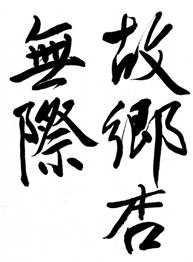 故鄉杳
無際